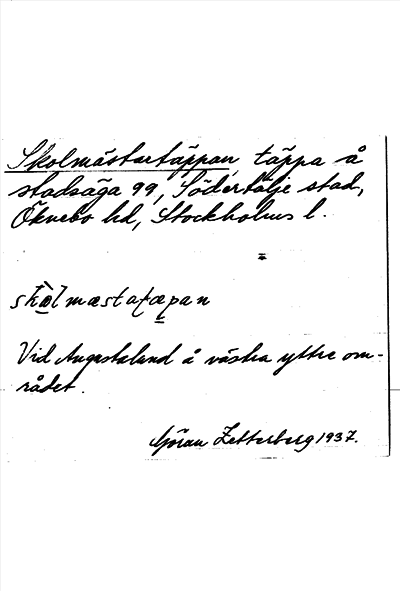 Skolmästartäppan, täppa å
stadsäga 99, Södertälje stad,
Öknebo hd, Stockholms l.
skòlmæstatæpan
Vid Augustalund å västra yttre om-
rådet.
Göran Zetterberg 1937.